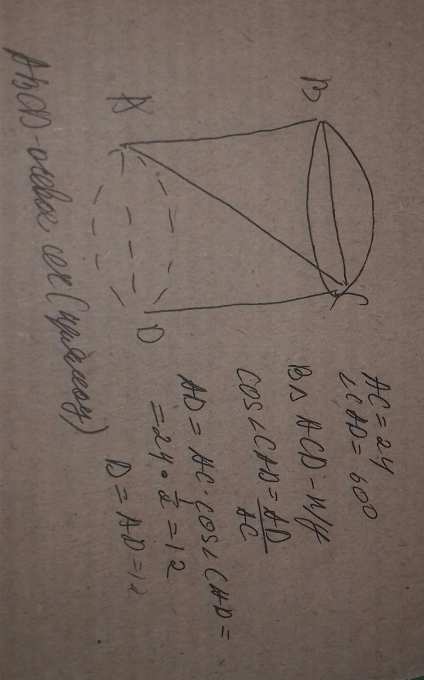 B
A
C
D
ABCD - осевое сеч (прямоуг)
AC = 24
∠CAD = 60°
В △ ACD - п/у
cos∠CAD = AD/AC
AD = AC · cos∠CAD =
= 24 · 1/2 = 12
D = AD = 12